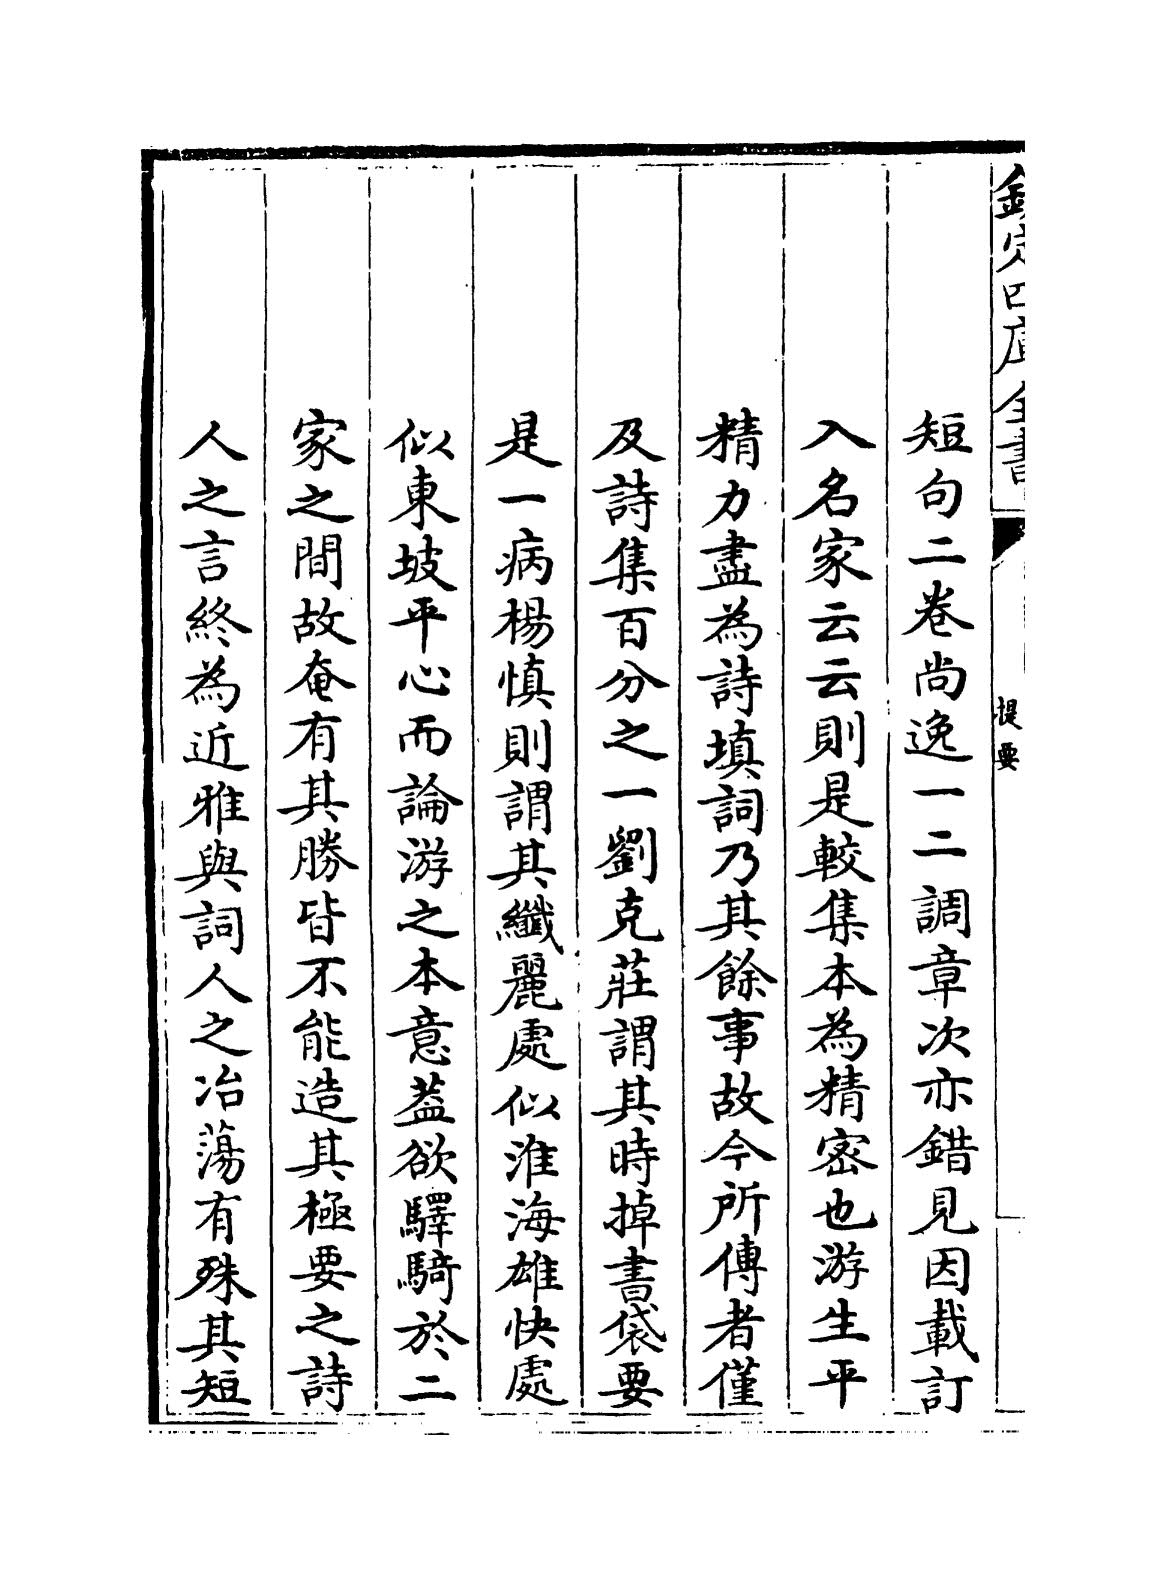 欽定四庫全書
提要
短句二卷尚逸一二調章次亦錯見因載訂
入名家云云則是較集本為精密也游生平
精力盡為詩填詞乃其餘事故今所傳者僅
及詩集百分之一劉克莊謂其時掉書袋要
是一病楊慎則謂其纖麗處似淮海雄快處
似東坡平心而論游之本意葢欲驛騎於二
家之間故奄有其勝皆不能造其極要之詩
人之言終為近雅與詞人之冶蕩有殊其短